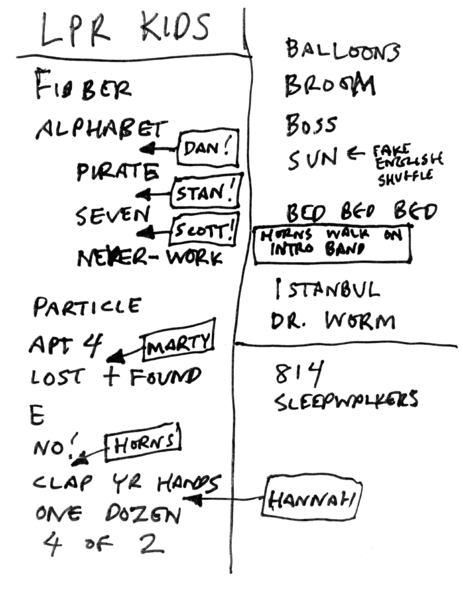 LPR KIDS
FIBBER
ALPHABET
DAN!
PIRATE
STAN!
SEVEN
SCOTT!
NEVER-WORK
PARTICLE
APT 4
MARTY
LOST + FOUND
E
NO!
HORNS
CLAP YR HANDS
ONE DOZEN
4 OF 2
BALLOONS
BROOM
BOSS
SUN ← FAKE
ENGLISH
SHUFFLE
BED BED BED
HORNS WALK ON
INTRO BAND
ISTANBUL
DR. WORM
814
SLEEPWALKERS
HANNAH